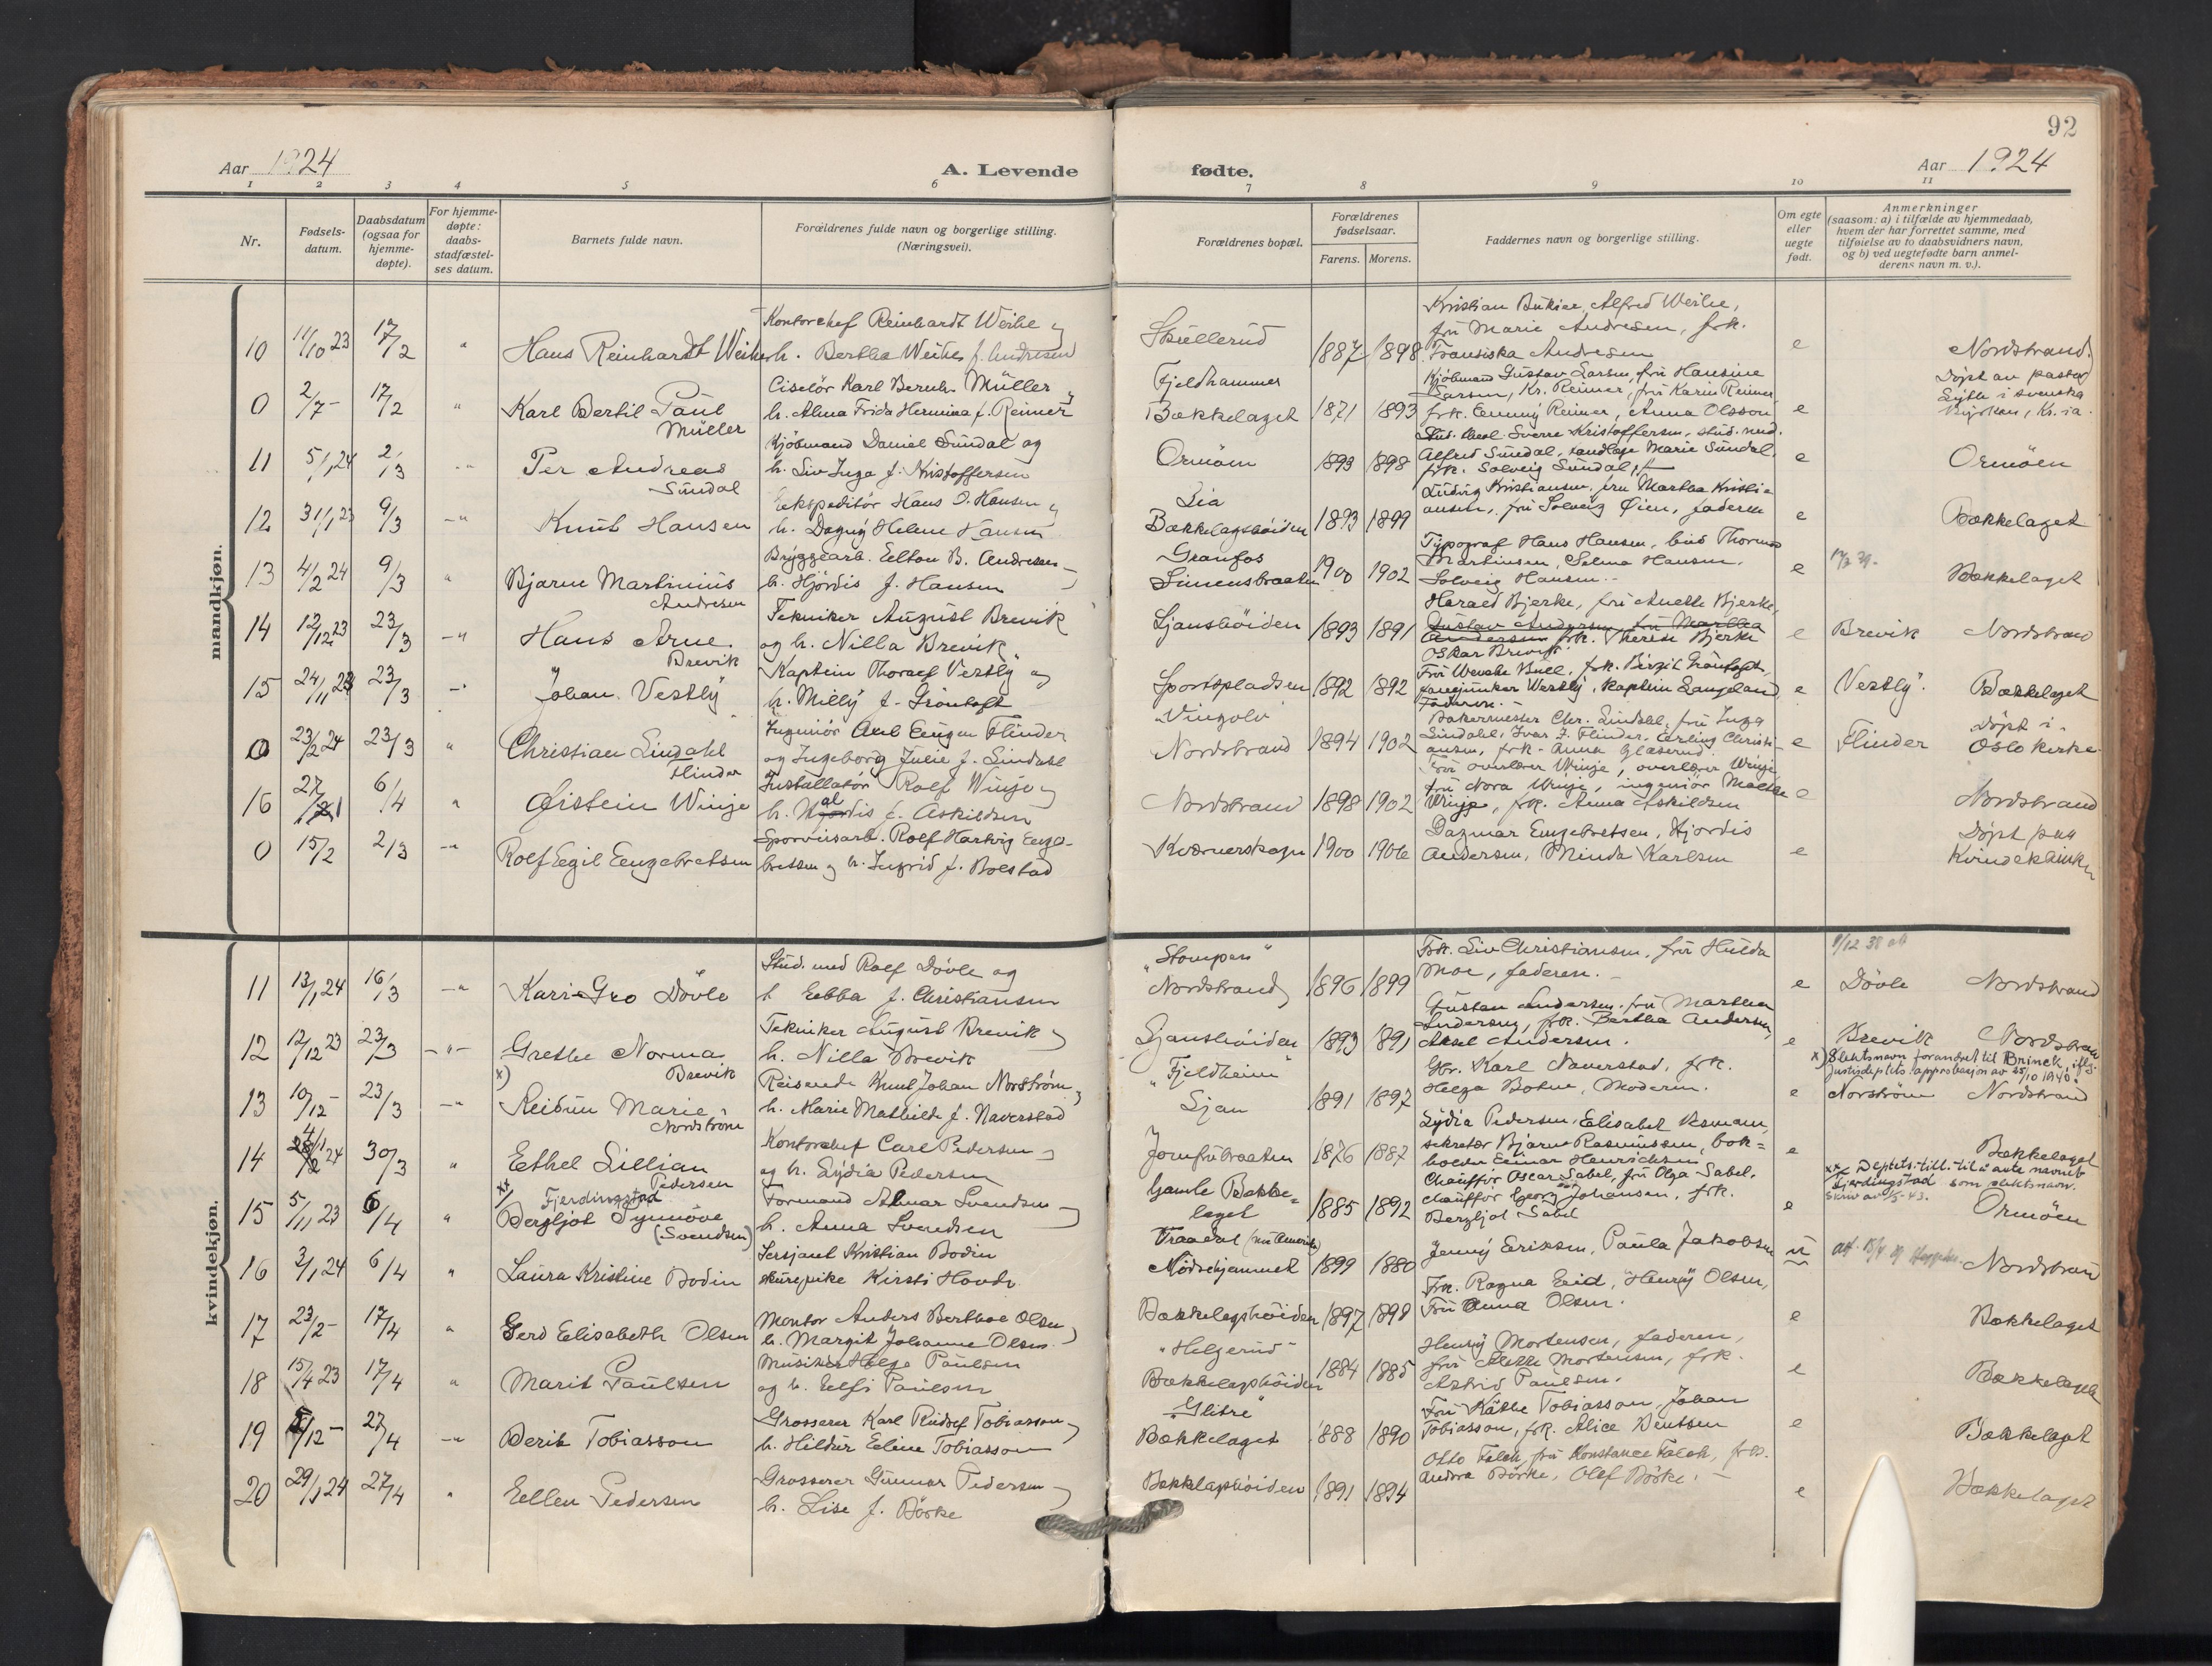 92
Aar 1924
A. Levende
fødte.
Aar 1924
1 2 3 4 5 6 7 8 9 10 11
Nr.
Fødsels-
datum.
Daabsdatum
(ogsaa for
hjemme-
døpte).
For hjemme-
døpte:
daabs-
stadfæstel-
ses datum.
Barnets fulde navn.
Forældrenes fulde navn og borgerlige stilling.
(Næringsvei).
Forældrenes bopæl.
Forældrenes
fødselsaar.
Farens. Morens.
Faddernes navn og borgerlige stilling.
Om egte
eller
uegte
født.
Anmerkninger
(saasom: a) i tilfælde av hjemmedaab,
hvem der har forrettet samme, med
tilføielse av to daabsvidners navn,
og b) ved uegtefødte barn anmel-
derens navn m. v.).
mandkjøn.
10 11/10 23 17/2 " Hans Reinhardt Weihe
Kontorchef Reinhardt Weihe og
h. Bertha Weihe f. Andresen
Skullerud
1887 1898
Kristian Alfred Weihe,
fru Marie Andresen, frk.
Fransiska Andresen
e
Nordstrand.
0 2/7 - 17/2 " Karl Bertil Paul
Müller
Ciselör Karl Bernh. Müller og
h. Alma Frida Hermina f. Reimer
Fjeldhammer
Bækkelaget
1871 1893
Kjöbmand Gustav Larsen, fru Hansine
Larsen, Kr. Reimer, fru Karin Reimer,
frk. Emmy Reimer, Anna Olsson
e
Döpt av pastor
i svenska
kyrkan, Kr.ia.
11 5/1 24 2/3 " Per Andreas
Sundal
Kjöbmand Daniel Sundal og
h. Liv Inga f. Kristoffersen
Ormöen
1893 1898
Stud. theol. Sverre Kristoffersen, stud. med.
Alfred Sundal, tandlæge Marie Sundal,
frk. Solveig Sundal
e
Ormöen
12 31/1 23 9/3 " Knut Hansen
Ekspeditör Hans O. Hansen og
h. Dagny Helene Hansen
Lia
Bækkelagshöiden
1893 1899
Ludvig Kristiansen, fru Martha Kristi-
ansen, fru Solveig Öien, faderen
e
Bækkelaget
13 4/2 24 9/3 " Bjarne Martinius
Andresen
Bryggearb. Elton B. Andresen
h. Hjördis f. Hansen
Granfos
Simensbraaten
1900 1902
Typograf Hans Hansen, Thormod
Martinsen, Selma Hansen,
Solveig Hansen.
e
Bækkelaget
14 12/12 23 23/3 " Hans Arne
Brevik
Tekniker August Brevik
og h. Nilla Brevik
Ljanshöiden
1893 1891
Harald Bjerke, fru Anette Bjerke,
Gustav Andersen, fru Martha
Andersen frk. Therese Bjerke
Oskar Brevik
e
Brevik Nordstrand
15 24/11 23 23/3 " Johan Vestly
Kaptein Thoralf Vestly og
h. Milly f. Gröntoft
Sportspladsen
1892 1892
Fru Wenche Bull, frk. Birgit Gröntoft,
fanejunker Westly, kaptein Langeland,
Faderen.
e
Vestly. Bækkelaget
0 23/2 24 23/3 " Christian Lindahl
Flinder
Ingeniör Axel Eugen Flinder
og Ingeborg Julie f. Lindahl
"Vingolv"
Nordstrand
1894 1902
Bakermester Chr. Lindahl, fru Inga
Lindahl, Ivar J. Flinder, Erling Christi-
ansen, frk. Anna Glæserud.
e
Flinder
Döpt i
Oslo kirke.
16 27/1 6/4 " Øistein Winje
Installatör Rolf Winje og
h. Aldis f. Askildsen
Nordstrand
1898 1902
Fru overlærer Winje, overlærer Winje,
fru Nora Winje, ingeniör Moltke
Winje, frk. Anna Askildsen
e
Nordstrand
0 15/2 2/3 " Rolf Egil Engebretsen
Sporveisarb. Rolf Hartvig Enge-
bretsen og h. Ingrid f. Bolstad
Kværnerskogen
1900 1906
Dagmar Engebretsen, Hjördis
Andersen, Minda Karlsen
e
Döpt paa
Kvindeklinikken
kvindekjøn.
11 13/1 24 16/3 " Kari-Gro Dövle
Stud. med Rolf Dövle og
h Ebba f. Christiansen
"Stompen"
Nordstrand
1896 1899
Frk. Liv Christiansen, fru Hulda
Moe, faderen.
e
1/12 38 att
Dövle Nordstrand
12 12/12 23 23/3 " Grethe Norma
Brevik
Tekniker August Brevik og
h. Nilla Brevik
Ljanshöiden
1893 1891
Gustav Andersen, fru Martha
Andersen, frk. Bertha Andersen,
Aksel Andersen.
e
Brevik Nordstrand
13 10/12 - 23/3 " x) Reidun Marie
Nordström
Reisende Knut Johan Norström og
h. Marie Mathilde f. Naverstad
"Fjeldheim"
Ljan
1891 1897
Gbr. Karl Naverstad, frk.
Helga Bohne, Moderen.
e
x) Slektsnavn forandret til Brinck, iflg.
Justisdeptets approbasjon av 25/10 1940.
Norström Nordstrand
14 4/1 24 30/3 " Ethel Lillian
Pedersen
Kontorchef Carl Pedersen
og h. Lydia Pedersen
Jomfrubraaten
1876 1887
Lydia Pedersen, Elisabet Asmann,
sekretær Bjarne Rasmussen, bok-
holder Einar Henrichsen
e
Bækkelaget
15 5/11 23 6/4 " xx Bergljot Synnöve Fjerdingstad
(Svendsen)
Formand Almar Svendsen
h. Anna Svendsen
Gamle Bække-
laget
1885 1892
Chaufför Oscar Sabel, fru Olga Sabel,
chaufför Georg Johansen, frk.
Bergljot Sabel
e
xx Deptets till. til å anta navnet
Fjerdingstad som slektsnavn.
Skriv av 1/5-43.
Ormöen
16 3/1 24 6/4 " Laura Kristine Bodin
Sersjant Kristian Bodin
skurepike Kirsti Hovde
Mödrehjemmet
1899 1880
Jenny Eriksen, Paula Jakobsen
u
Nordstrand
17 23/2 - 17/4 " Gerd Elisabeth Olsen
Montör Anders Berthoe Olsen
h. Margit Johanne Olsen
Bækkelagshöiden
1897 1898
Frk. Ragna Eid, Henry Olsen,
Fru Anna Olsen.
e
Bækkelaget
18 15/4 23 17/4 " Marit Paulsen
Musiker Helge Paulsen
og h. Elfi Paulsen
"Helgerud"
Bækkelagshöiden
1884 1885
Henry Mortensen, faderen,
fru Mortensen, frk.
Astrid Paulsen.
e
Bækkelaget
19 5/12 - 27/4 " Berit Tobiasson
Grosserer Karl Rudolf Tobiasson og
h. Hildur Eline Tobiasson
"Glitre"
Bækkelaget
1888 1890
Fru Käthe Tobiasson, Johan
Tobiasson, frk. Alice Bentsen
e
Bækkelaget
20 29/1 24 27/4 " Ellen Pedersen
Grosserer Gunnar Pedersen
h. Lise f. Börke
Bækkelagshöiden
1891 1894
Otto Falch, fru Konstance Falch, frk.
Andrea Börke, Olaf Börke.
e
Bækkelaget